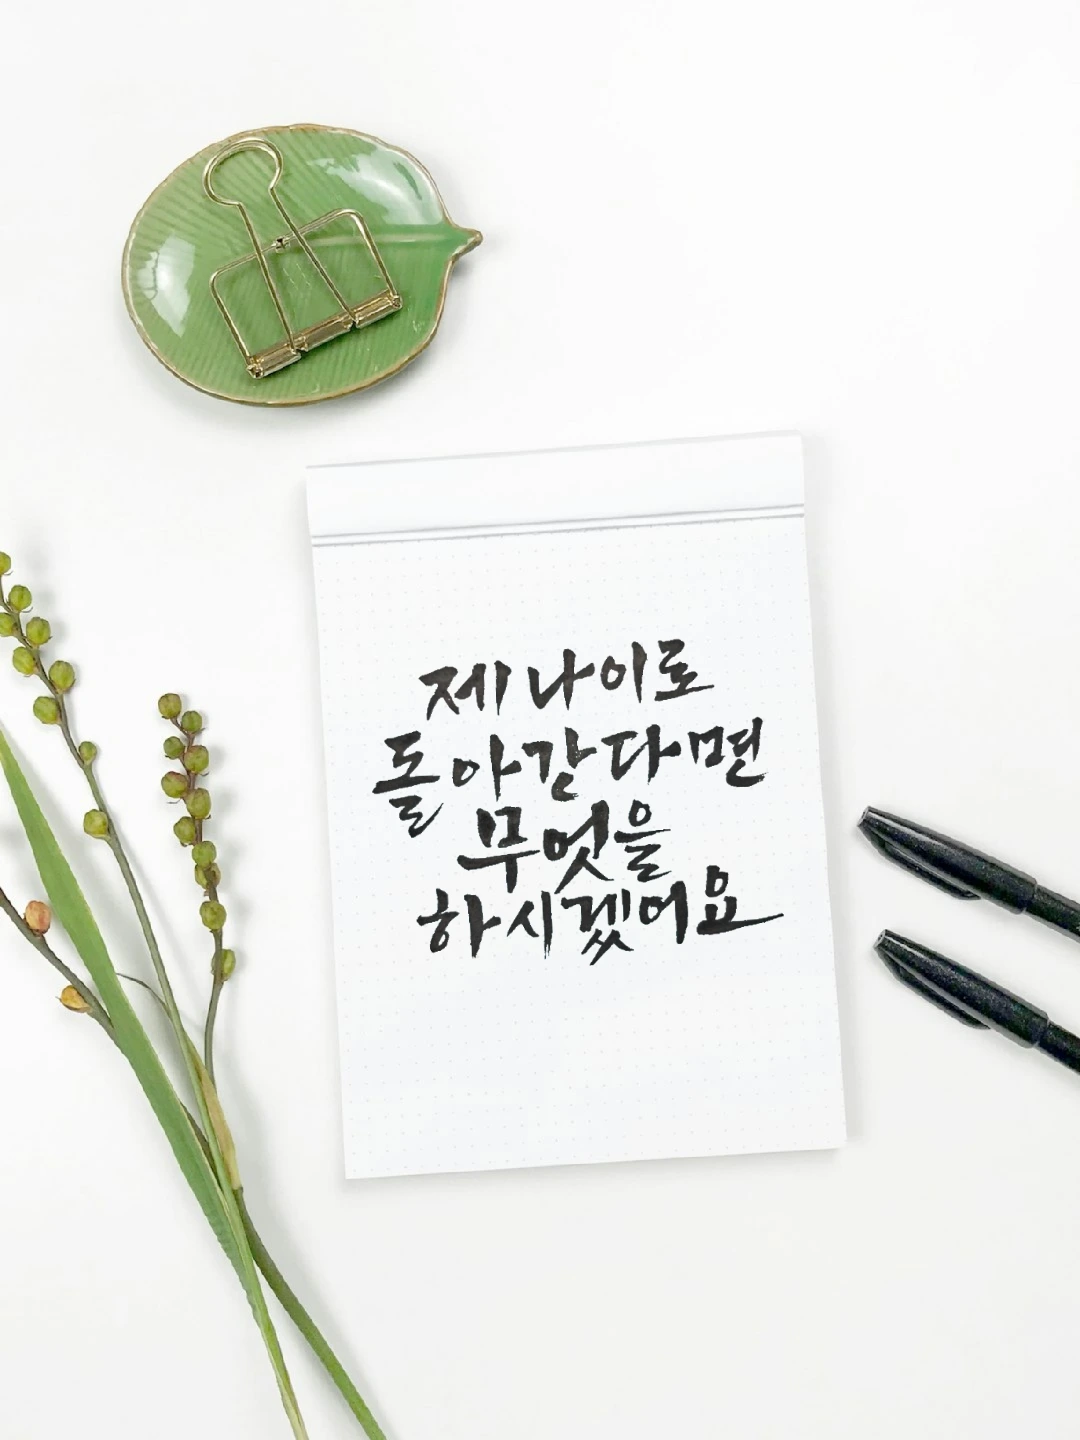 제 나이로
돌아간다면
무엇을
하시겠어요